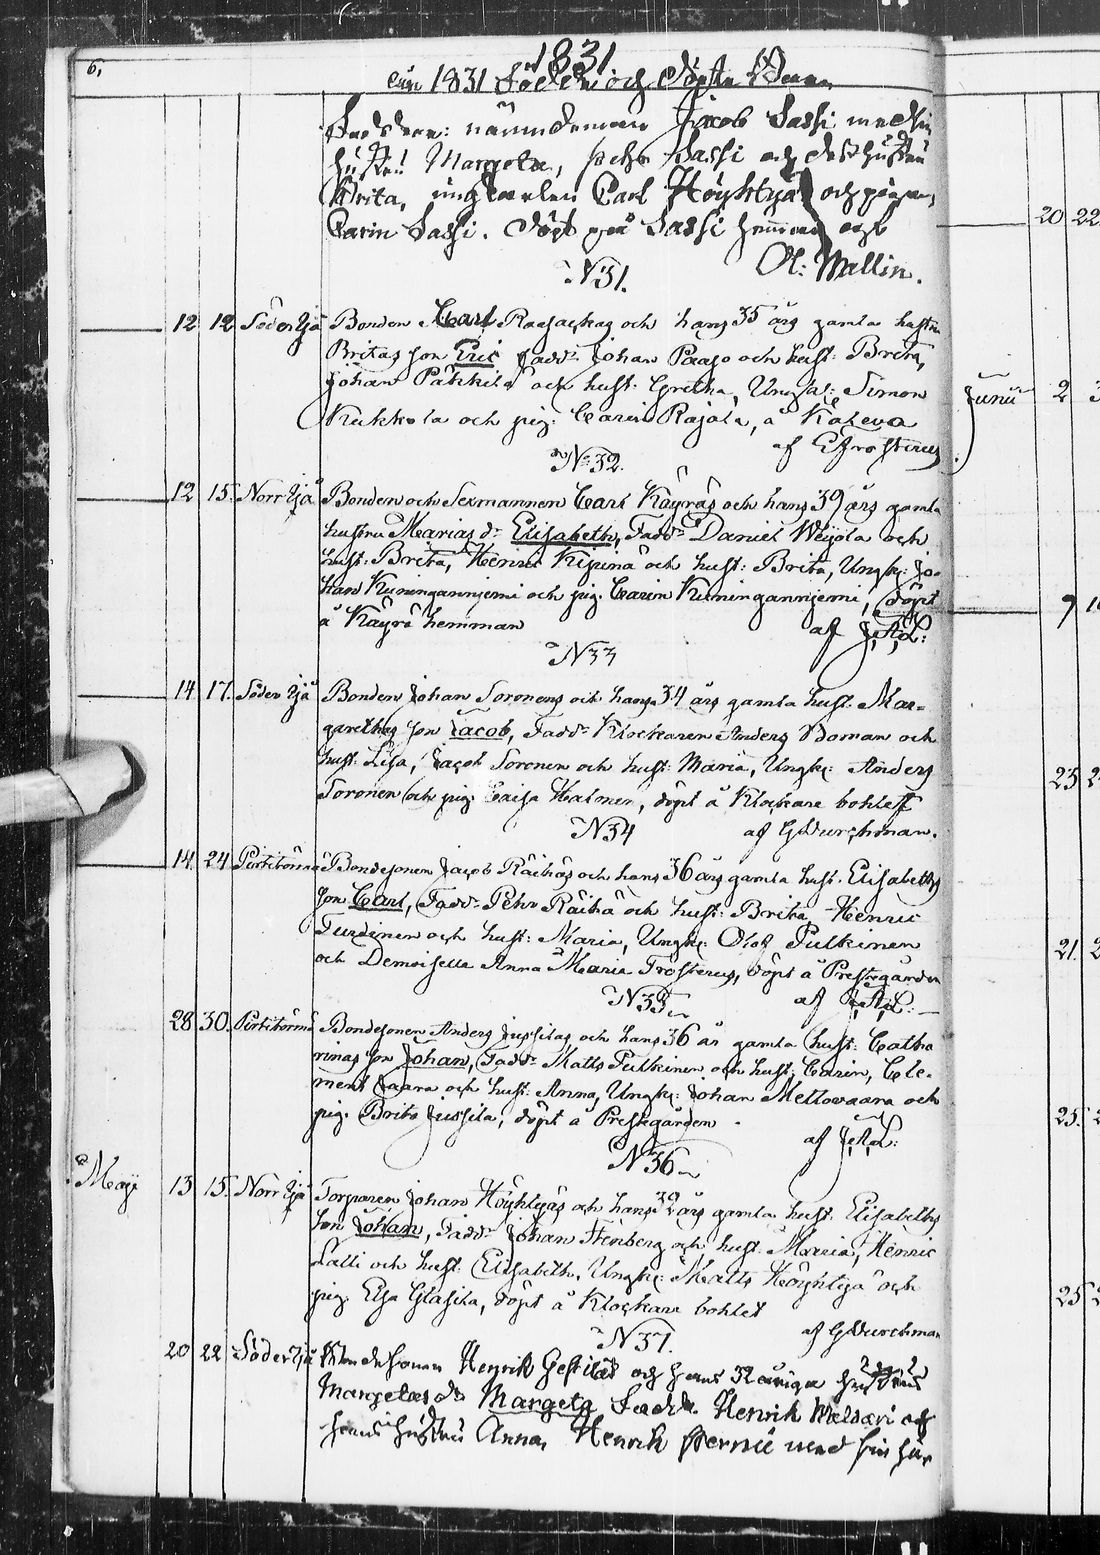 6.
1831
1831 Födde och Döpte
nämndeman Jacob Sassi med sin
hustru Margeta, Pehr Sassi och dess hustru
Brita, ungkarlen Carl Höyhtyä och pigan
Carin Sassi. Döpt på Sassi hemman af
Ol: Wallin.
N31.
12 12 Söder Ijå Bonden Carl Raasackas och hans 35 års gamla hustru
Britas Son Eric Fadd: Johan Paaso och hust: Brita,
Johan Päkkilä och hust: Gretha, Ungk: Simon
Kukkola och pig. Carin Rajala, å Kaleva
af E Frosterus
No 32.
12 15. Norr Ijå Bonden och Sexmannen Carl Käyräs och hans 39 års gamla
hustru Marias dr. Elisabeth, Fadd: Daniel Weijola och
hust: Brita, Henric Kipinä och hust: Brita, Ungk: Jo-
han Kuninganniemi och pig. Carin Kuninganniemi, döpt
å Käyrä hemman af
N33
14. 17. Söder Ijå Bonden Johan Soronens och hans 34 års gamla hust. Mar-
garethas Son Jacob, Fadd: Klockaren Anders Boman och
hust: Lisa, Jacob Soronen och hust: Maria, Ungk: Anders
Soronen och pig. Caisa Halonen, döpt å Klockare bohlet
N34 af G Durchman.
14. 24 Pirttitörmä Bondesonen Jacob Räihäs och hans 36 års gamla hust. Elisabeths
Son Carl, Fadd: Pehr Räihä och hust: Brita, Henric
Turdinen och hust: Maria, Ungk: Olof Pulkinen
och Demoiselle Anna Maria Frosterus, döpt å Prestgården
N35 af
28 30. Pirttitörmä Bondesonen Anders Jussilas och hans 36 år gamla hust: Catha
rinas Son Johan, Fadd: Matts Pulkinen och hust: Carin, Cle-
ment Jaara och hust: Anna, Ungk: Johan Mettovaara och
pig. Brita Jussila, döpt å Prestgården
af
N36
Maji 13 15. Norr Ijå Torparen Johan Höyhtyäs och hans 39 års gamla hust. Elisabeths
Son Johan, Fadd: Johan Stenberg och hust: Maria, Henric
Lalli och hust: Elisabeth, Ungk: Matts Höyhtyä och
pig. Elsa Glasila, döpt å Klockare bohlet
af G Durchman
N37.
20 22 Söder Ijå Bondesonen Henrik och hans 32 åriga hustrus
Margetas dr Margeta Fadd: Henrik och
hans hustru Anna, Henrik med sin
20 22.
Junii 2
9
23
21.
25.
25